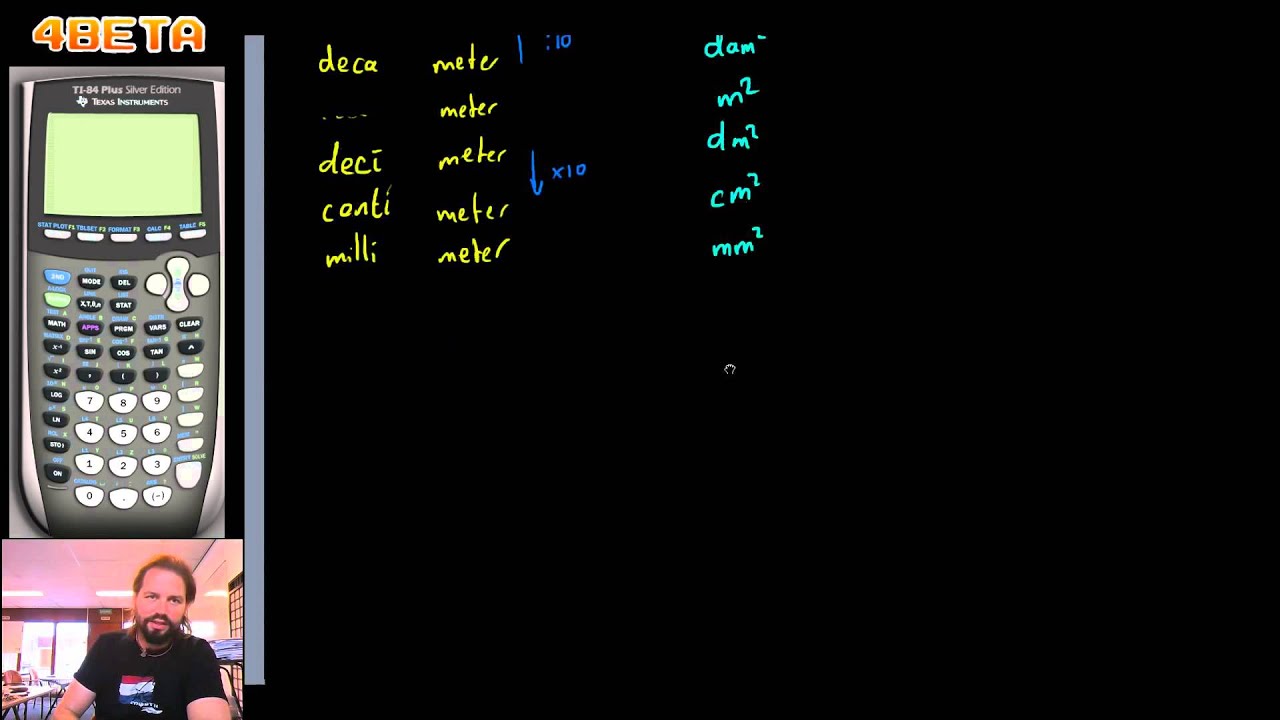 4BETA
TI-84 Plus Silver Edition
TEXAS INSTRUMENTS
STAT PLOT F1 TBLSET F2 FORMAT F3 CALC F4 TABLE F5
2ND MODE DEL
X,T,θ,n STAT
MATH APPS PRGM VARS CLEAR
x⁻¹ SIN COS TAN ^
x² , ( )
LOG 7 8 9
LN 4 5 6
STO 1 2 3
ON 0 . (-)
deca meter :10 dam²
.... meter m²
deci meter dm²
x10
conti meter cm²
milli meter mm²